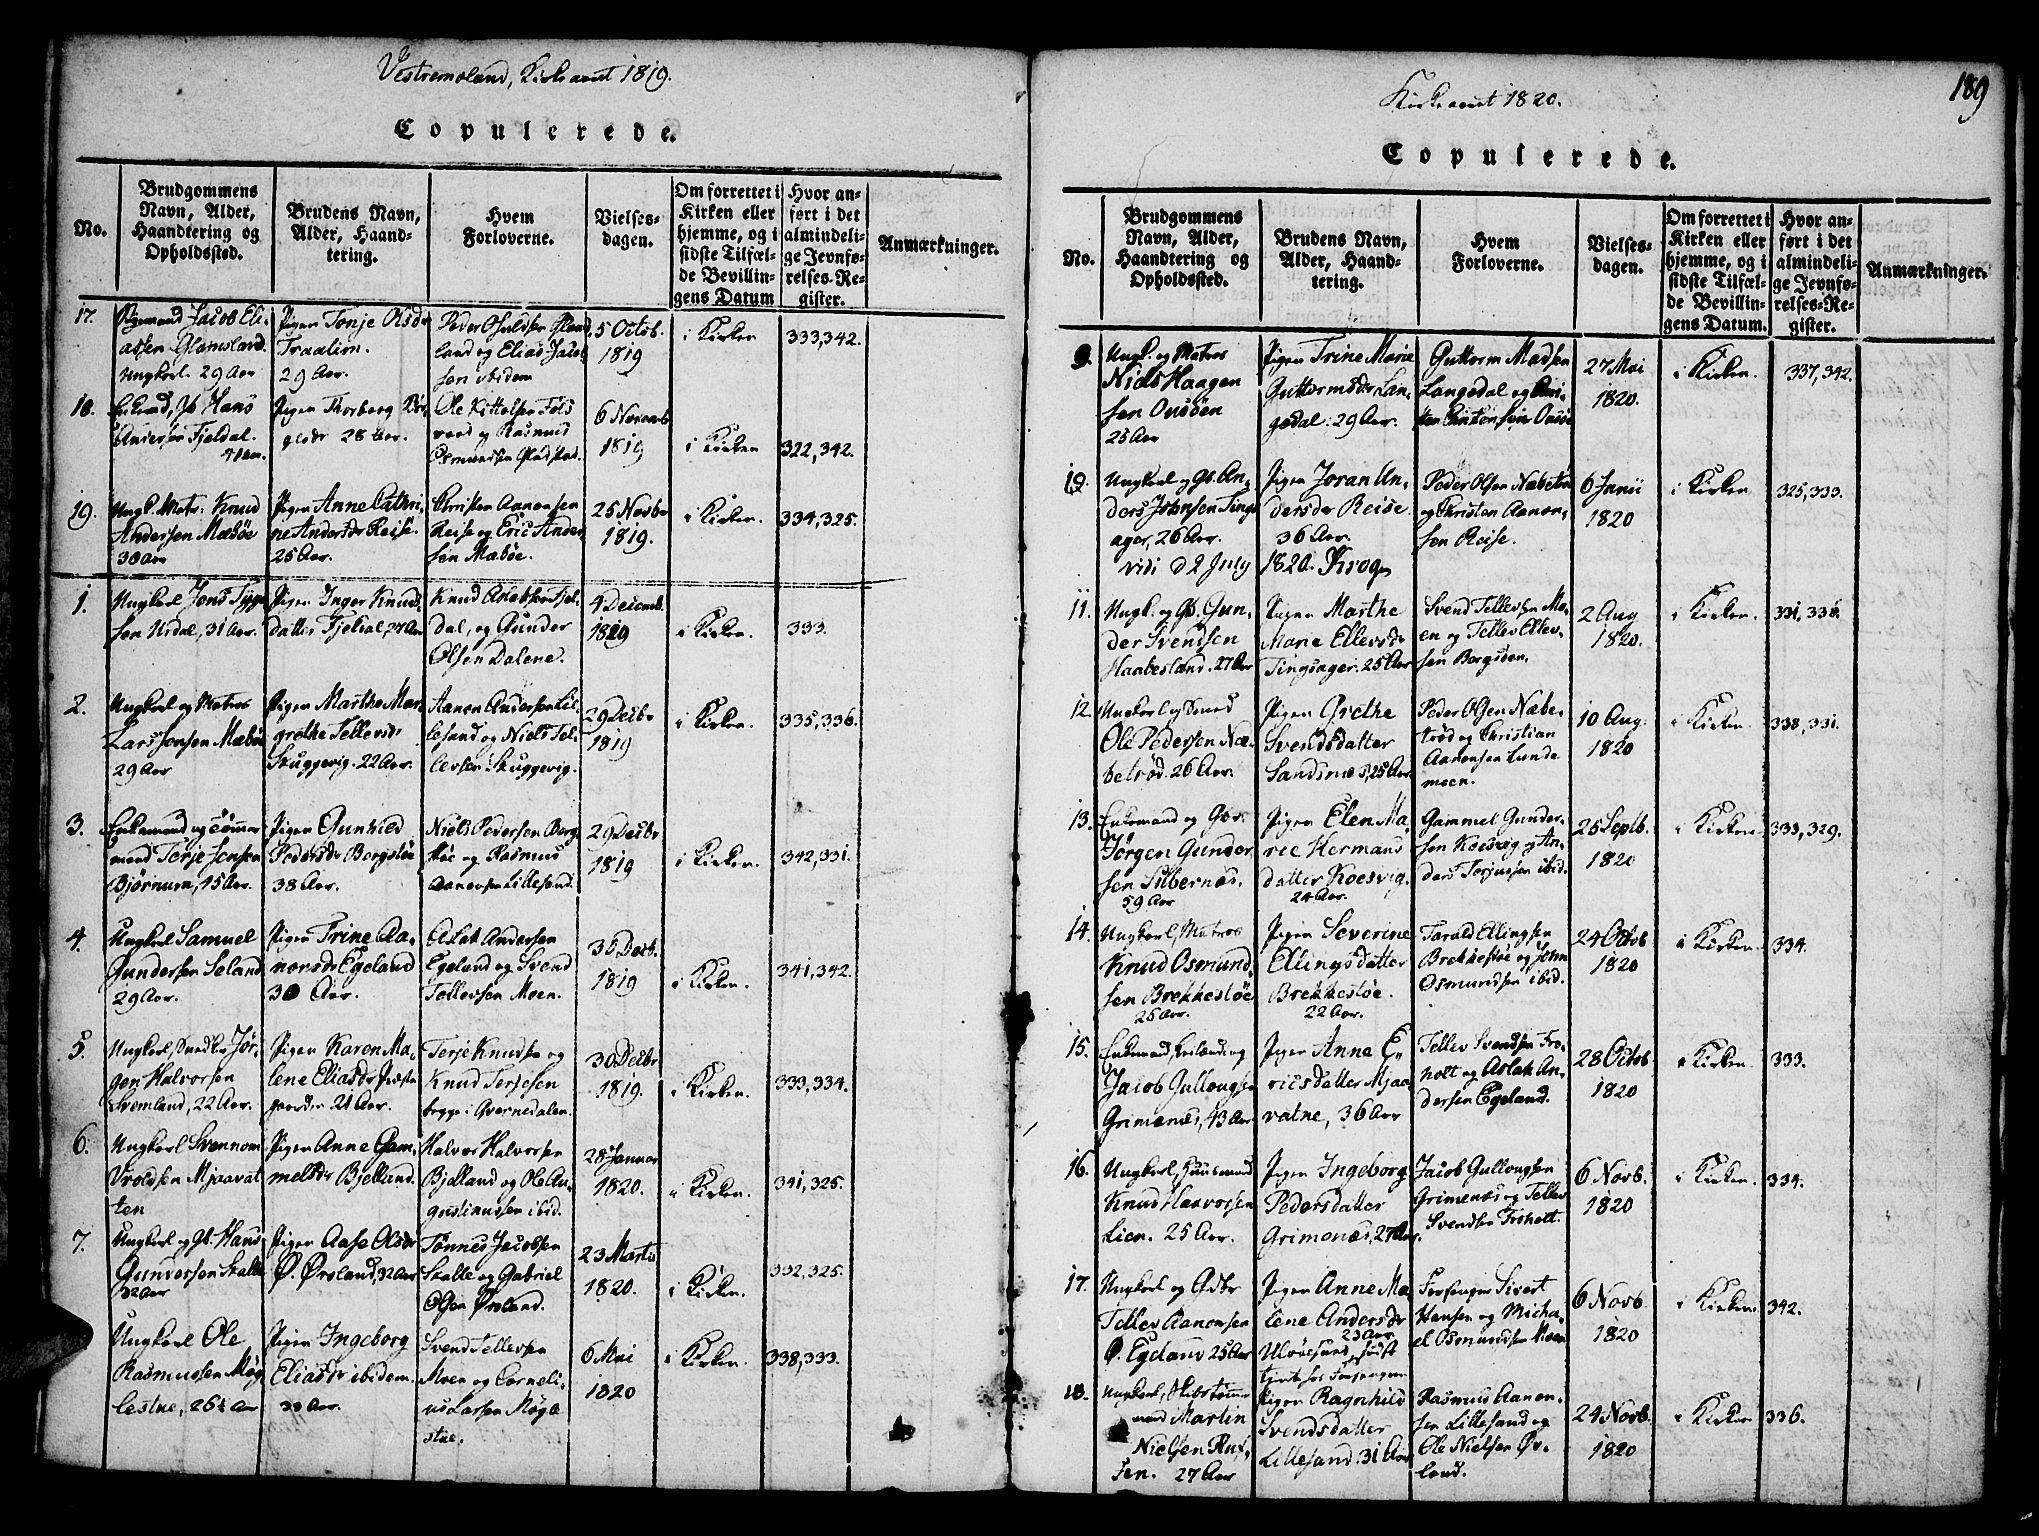 Vestremoland, Kirkeaaret 1819.
Copulerede.
No.
Brudgommens Navn, Alder, Haandtering og Opholdssted.
Brudens Navn, Alder, Haandtering.
Hvem Forloverne.
Vielsesdagen.
Om forrettet i Kirken eller hjemme, og i sidste Tilfælde Bevillingens Datum
Hvor anført i det almindelige Jevnførelses-Register.
Anmærkninger.
17.
Jacob Eliassen Glamsland.
Ungkarl 29 Aar
Pigen Tonje Olsdr
Traalim.
29 Aar.
Peder Osuldsen Glamsland og Elias Jacobsen ibidem
5 Octob.
1819
i Kirken
333,342.
18.
Hans
Andersen Fjeldal.
Pigen Thorborg
28 Aar.
Ole Kittelsen
og Rasmus
6 Novemb
1819
i Kirken
322,342.
19.
Ungk. Matr: Knud
Andersen Mæbøe
30 Aar
Pigen Anne Cathrine Andersdr Reise.
25 Aar.
Christen Aanonsen
Reise og Eric Andersen Mæbøe.
25 Novbr
1819.
i Kirken.
334,325.
1.
Ungkarl Jens Tygesen Urdal, 31 Aar.
Pigen Inger Knudsdatter Fjeldal, 27 Aar
Knud Aslaksen Fjeldal, og Gunder
Olsen Dalene.
4 Decemb.
1819
i Kirken.
333.
2.
Ungkarl og Matros
Lars Jensen Mæbøe
29 Aar
Pigen Marthe Margrethe Tellevsdr
Skuggevig. 22 Aar.
Aanon Andersen Lillesand og Niels Tellevsen Skuggevig.
29 Decbr
1819
i Kirken.
335,336.
3.
Enkemand og Tømmermand Terje Jensen
Bjørnum, 45 Aar.
Pigen Gunhild
Pedersdr Borgstøe
38 Aar.
Niels Pedersen Borgstøe og Rasmus
Aanonsen Lillesand.
29 Decbr
1819
i Kirken.
342,331.
4.
Ungkarl Samuel
Gundersen Seland
29 Aar.
Pigen Trine Aanonsdr Egeland
30 Aar.
Aslak Andersen
Egeland og Svend
Tellevsen Moen.
35 Decbr.
1819
i Kirken.
341,342.
5.
Ungkarl, Snedker Jørgen Halvorsen
Svemland, 22 Aar.
Pigen Karen Malene Eliasdr
21 Aar.
Terje Knudsen og
Knud Terjesen
begge i Qvernedalen.
30 Decbr
1819.
i Kirken.
333,334.
6.
Ungkarl Svennom
Vroldsen Mjaavatten
Pigen Anne Gammelsdr Bjelland.
Halvor Halvorsen
Bjelland og Ole Augustinussen ibid.
28 Januar
1820.
i Kirken.
341,325.
7.
Ungkarl og Gb. Hans
Gundersen Skalle
32 Aar
Pigen Aase Olsdr
Ø. Øvland, 32 Aar
Tønnes Jacobsen
Skalle og Gabriel
Olsen Øvland.
23 Martii
1820.
i Kirken.
332,325.
Ungkarl Ole
Rasmussen Møglestue, 26½ Aar
Pigen Ingeborg
Eliasdr ibidem.
33 Aar.
Svend Tellevsen
Moen og Cornelius Larsen Møglestue.
6 Mai
1820
i Kirken.
338,333.
Kirkeaaret 1820.
189
Copulerede.
No.
Brudgommens Navn, Alder, Haandtering og Opholdssted.
Brudens Navn, Alder, Haandtering.
Hvem Forloverne.
Vielsesdagen.
Om forrettet i Kirken eller hjemme, og i sidste Tilfælde Bevillingens Datum.
Hvor anført i det almindelige Jevnførelses-Register.
Anmærkninger.
9.
Ungk. og Matros
Niels Haagensen Ousøen
25 Aar
Pigen Trine Marie
Guttormsdr Langedal: 29 Aar.
Guttorm Madsen
Langedal og
27 Mai
1820.
i Kirken.
337,342.
10.
Ungkarl og Gb. Anders Johnsen Tingsager, 26 Aar.
Pigen Joran Andersdr Reise
36 Aar.
Peder Olsen Næbetrø
og Christen Aanonsen Reise.
6 Junii
1820
i Kirken
325,333.
vidi d 2 July 1820. Krog
11.
Ungk. og Gb. Gunder Svendsen
Haabesland. 27 Aar
Pigen Marthe
Marie Ellevsdr
Tingsager. 25 Aar
Svend Tellevsen Moen og Tellev Ellevsen Borgsøen.
2 Aug
1820.
i Kirken.
331,336.
12.
Ungkarl og Smed
Ole Pedersen Næbetrød. 26 Aar.
Pigen Grethe
Svendsdatter
Sandsnæs, 25 Aar.
Peder Olsen Næbetrød og Christian
Aanonsen Lundemoen.
10 Aug.
1820
i Kirken.
338,331.
13.
Enkemand og Gbr.
Jørgen Gundersen Silbernæs.
59 Aar
Pigen Elen Marie Hermansdatter Koesvig.
24 Aar.
Gammel Gundersen Koesvig og Anders Terjusen ibid.
25 Septb.
1820
i Kirken.
333,329.
14.
Ungkarl, Matros
Knud Osmundsen Brekkestøe
26 Aar.
Pigen Severine
Ellingsdatter
Brekkestøe.
22 Aar.
Tarald Ellingsen
Brekkestøe og John
Osmundsen ibid.
24 Octob
1820
i Kirken.
334.
15.
Enkemand,
Jacob Gullougsen
Grimenæs, 43 Aar
Pigen Anne Ericsdatter Mjaavatne, 36 Aar
Tellev Svendsen Froholt og Aslak Andersen Egeland.
28 Octob
1820
i Kirken.
333.
16.
Ungkarl, Huusmand
Knud Halvorsen
Lien. 25 Aar.
Pigen Ingeborg
Pedersdatter
Grimenæs, 27 Aar.
Jacob Gullougsen
Grimenæs og Tellev
Svendsen Froholt.
6 Novb.
1820
i Kirken.
334.
17.
Ungkarl og Gdbr
Tellev Aanonsen
Ø. Egeland 25 Aar
Pigen Anne Malene Andersdr
23 Aar.
Ulvøesund,
Forsanger Sivert
Hansen og Michael Osmundsen Moen
6 Novb
1820
i Kirken.
342.
18.
Ungkarl, Skibstømmermand Martin
Nielsen
27 Aar
Pigen Ragnhild
Svendsdatter
Lillesand. 31 Aar
Rasmus Aanonsen Lillesand og
Ole Nielsen Øvland.
24 Novb.
1820
i Kirken
336.